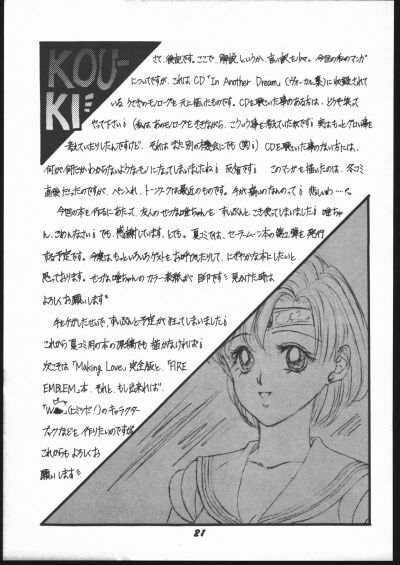 KOU-
KI
さて、後記です。ここで、解説というか、言い訳を少々。今回の私のマンガ
についてですが、これはCD「In Another Dream」(ヴォーカル集)に収録されて
いる、うさぎのモノローグを元に描いたものです。CDを聴いた事のある方は、どうぞ笑って
やって下さい (私はあのモノローグをききながら、こういう事を考えていたのです 実はもっとクロい事を
考えていたりしたんですけど、それはまた別の機会にでも(笑) CDを聴いた事のない方は、
何が何だかわからないようなモノになってしまいましたね 反省です このマンガを描いたのは、冬コミ
直後だったのですが、ペン入れ、トーンワークは最近のものです。
今回の本を作るにあたって、友人の
ごめんなさい でも、感謝しています、とても。夏コミでは、セーラームーン本の第2弾を発行
する予定です。今度はもっといろいろゲストもお呼びしたりして、にぎやかな本にしたいと
思っております。 カラー表紙が目印です 見かけた時は
よろしくお願いします
手をケガしたせいで、ずいぶんと予定が狂ってしまいました
これから夏コミ用の本の原稿でも描かなければ
次こそは「Making Love」完全版と、「FIRE
EMBLEM」本、それと、もし出来れば、
(ヒミツだ!)のキャラクター
ブックなども作りたいのですが
これからもよろしくお
願いします
21